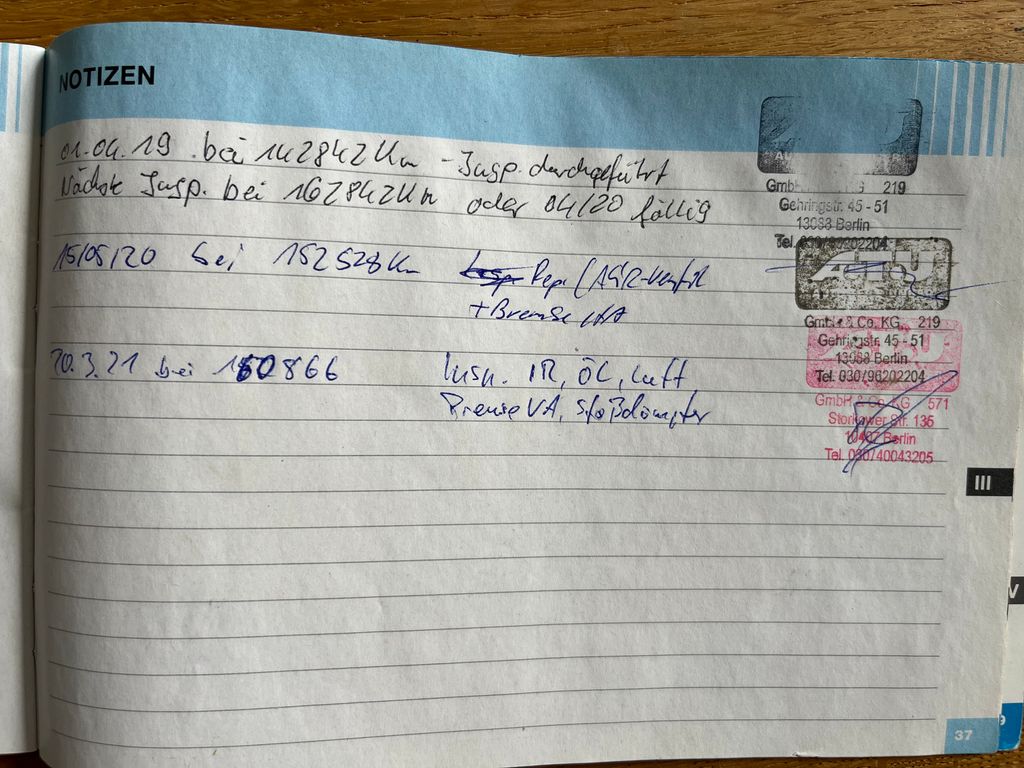 NOTIZEN
01.04.19 bei 142842 Km - Insp. durchgeführt
Nächste Insp. bei 162842 Km oder 04/20 fällig
GmbH KG 219
Gehringstr. 45 - 51
13088 Berlin
Tel. 030/96202204
15/05/20 bei 152528 Km Rep. (AGR-Ventil
+ Bremse
ATU
GmbH & Co. KG 219
Gehringstr. 45 - 51
13088 Berlin
Tel. 030/96202204
20.3.21 bei 160866 Insp. IR, ÖL, Luft
Bremse VA, Stoßdämpfer
GmbH & Co. KG 571
Storkower Str. 135
10407 Berlin
Tel. 030/40043205
III
V
9
37